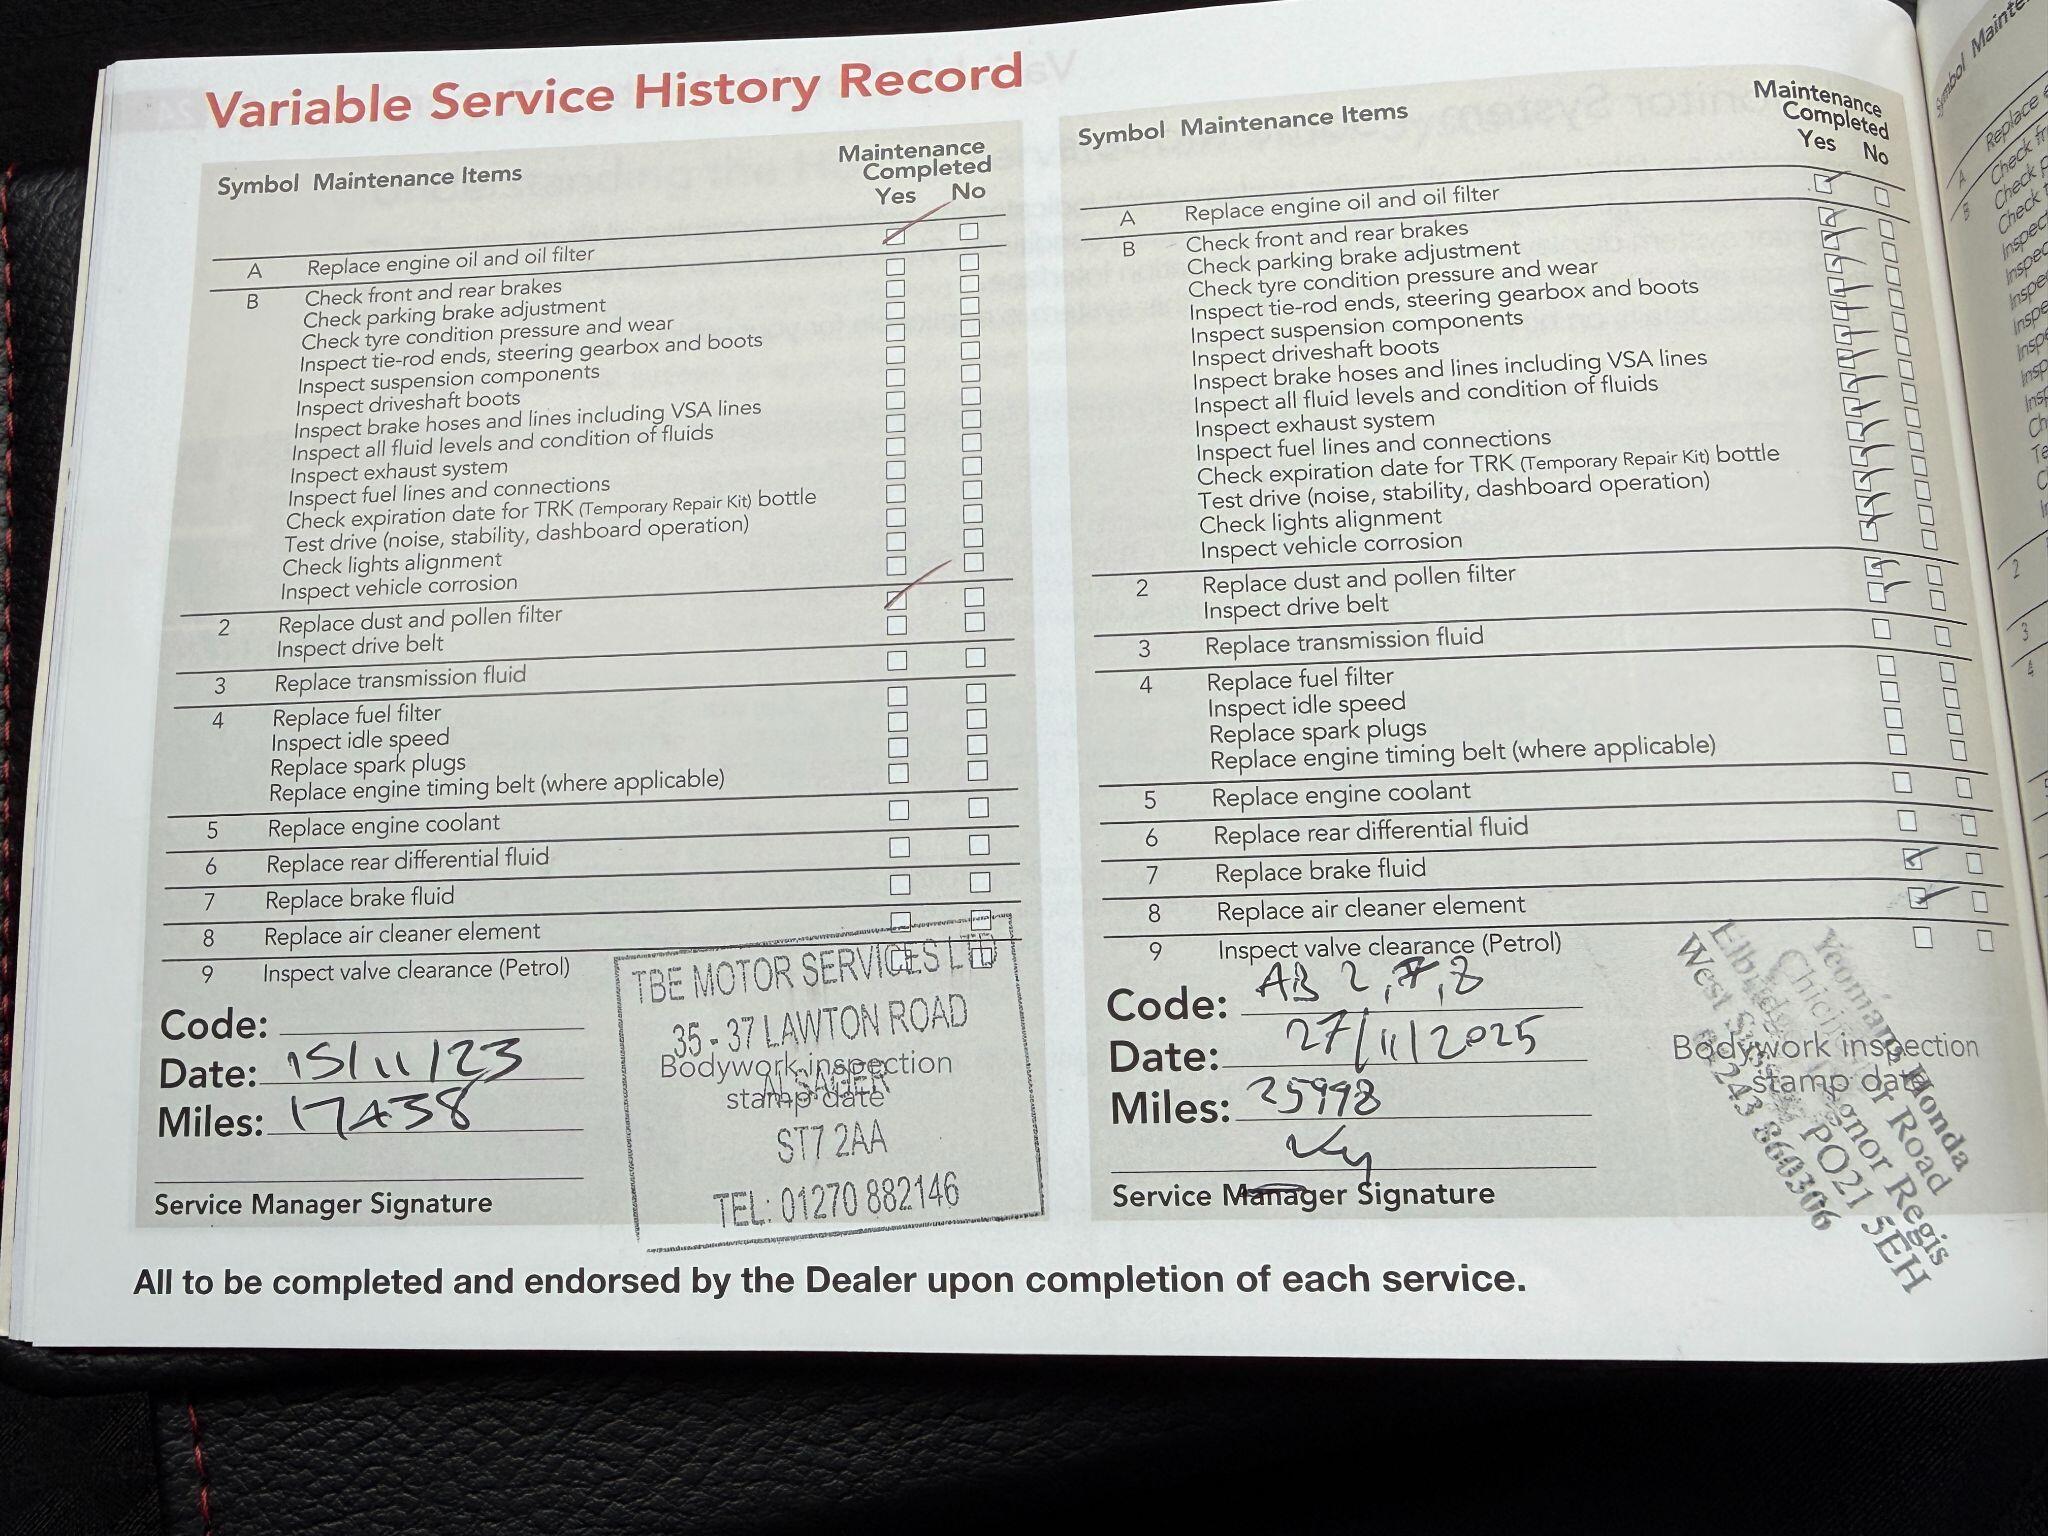 Variable Service History Record
Symbol Maintenance Items
Maintenance
Completed
Yes No
A Replace engine oil and oil filter
B Check front and rear brakes
Check parking brake adjustment
Check tyre condition pressure and wear
Inspect tie-rod ends, steering gearbox and boots
Inspect suspension components
Inspect driveshaft boots
Inspect brake hoses and lines including VSA lines
Inspect all fluid levels and condition of fluids
Inspect exhaust system
Inspect fuel lines and connections
Check expiration date for TRK (Temporary Repair Kit) bottle
Test drive (noise, stability, dashboard operation)
Check lights alignment
Inspect vehicle corrosion
2 Replace dust and pollen filter
Inspect drive belt
3 Replace transmission fluid
4 Replace fuel filter
Inspect idle speed
Replace spark plugs
Replace engine timing belt (where applicable)
5 Replace engine coolant
6 Replace rear differential fluid
7 Replace brake fluid
8 Replace air cleaner element
9 Inspect valve clearance (Petrol)
Code:
Date: 15/11/23
Miles: 17438
Service Manager Signature
TBE MOTOR SERVICES LTD
35 - 37 LAWTON ROAD
Bodywork inspection
ALSAGER
stamp date
ST7 2AA
TEL: 01270 882146
Symbol Maintenance Items
Maintenance
Completed
Yes No
A Replace engine oil and oil filter
B Check front and rear brakes
Check parking brake adjustment
Check tyre condition pressure and wear
Inspect tie-rod ends, steering gearbox and boots
Inspect suspension components
Inspect driveshaft boots
Inspect brake hoses and lines including VSA lines
Inspect all fluid levels and condition of fluids
Inspect exhaust system
Inspect fuel lines and connections
Check expiration date for TRK (Temporary Repair Kit) bottle
Test drive (noise, stability, dashboard operation)
Check lights alignment
Inspect vehicle corrosion
2 Replace dust and pollen filter
Inspect drive belt
3 Replace transmission fluid
4 Replace fuel filter
Inspect idle speed
Replace spark plugs
Replace engine timing belt (where applicable)
5 Replace engine coolant
6 Replace rear differential fluid
7 Replace brake fluid
8 Replace air cleaner element
9 Inspect valve clearance (Petrol)
Code: AB 2,7,8
Date: 27/11/2025
Miles: 25998
Service Manager Signature
Bodywork inspection
stamp date
Yeomans Honda
Road
Regis
West PO21 5EH
860306
All to be completed and endorsed by the Dealer upon completion of each service.